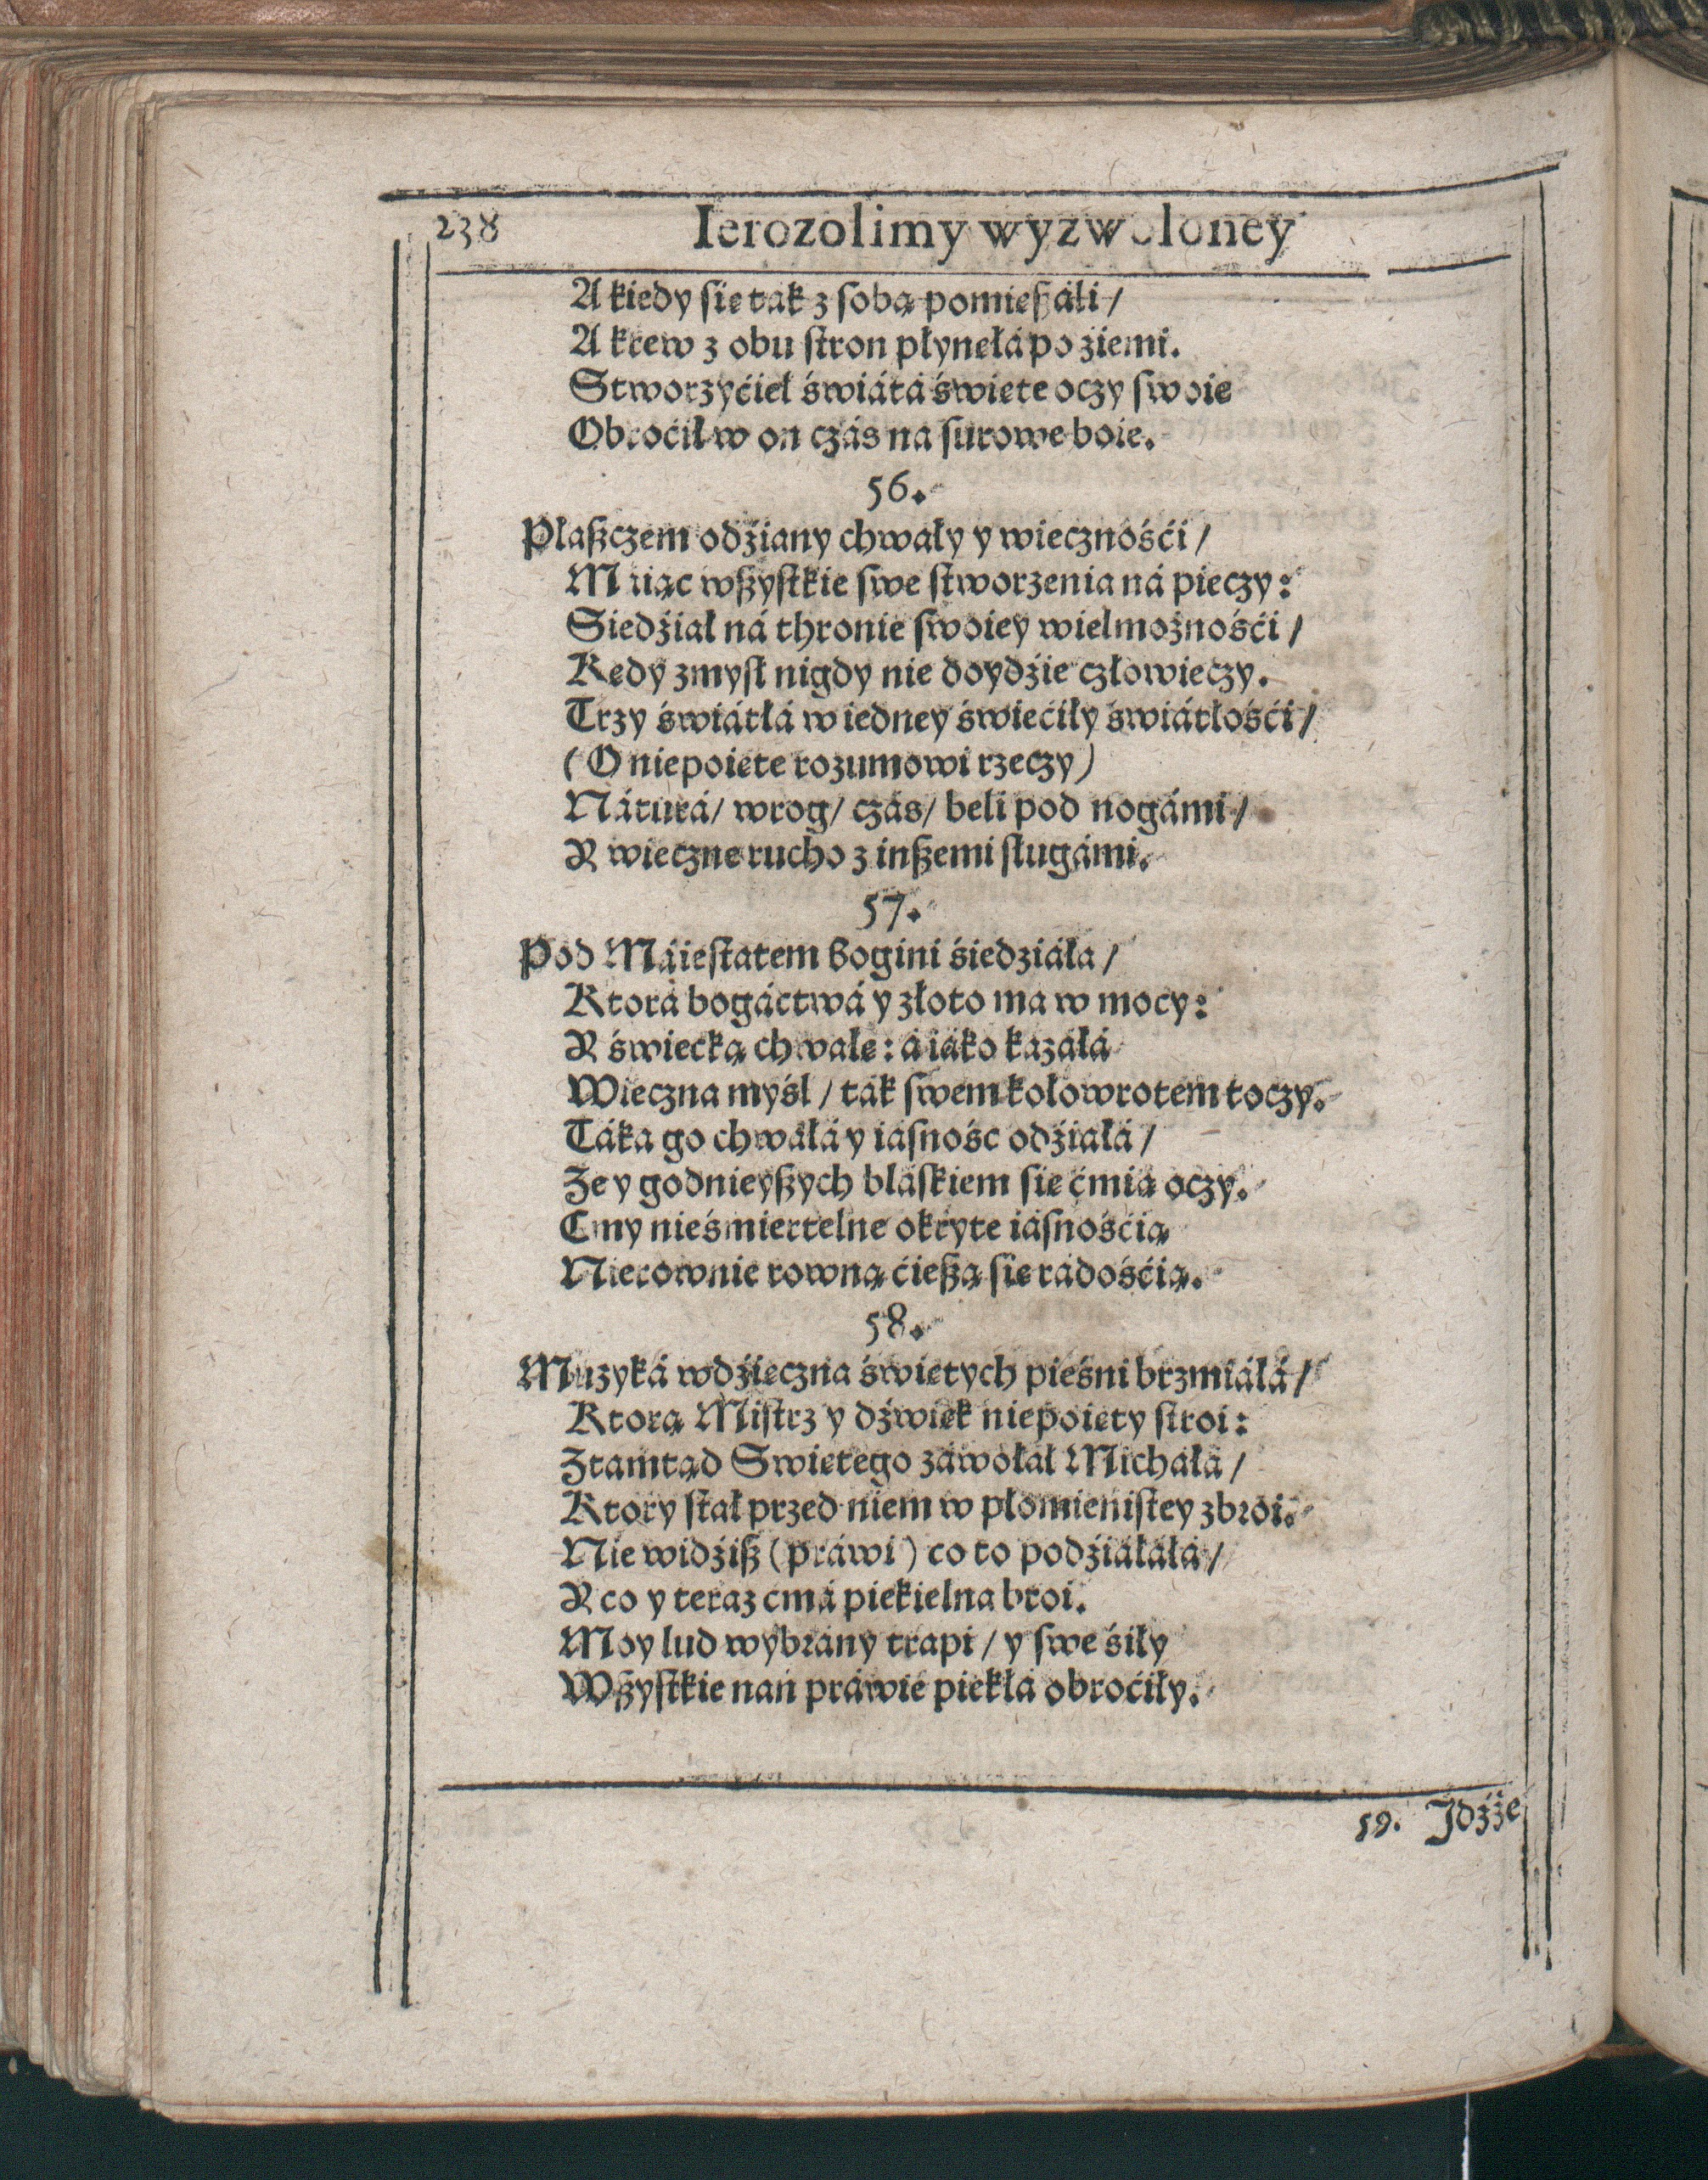 238 Ierozolimy wyzwoloney
A kiedy sie tak z sobą pomieszáli /
A krew z obu stron płynełá po źiemi.
Stworzyćiel świátá świete oczy swoie
Obroćił w on czás na surowe boie.
56.
Płaszczem odźiany chwały y wiecznośći /
Máiąc wszystkie swe stworzenia ná pieczy:
Siedźiał ná thronie swoiey wielmożnośći /
Kędy zmysł nigdy nie doydźie człowieczy.
Trzy świátłá w iedney świećiły świátłośći /
(O niepoięte rozumowi rzeczy)
Náturá / wrog / czás / beli pod nogámi /
Y wieczne rucho z inszemi sługámi.
57.
Pod Máiestatem bogini śiedziáła /
Ktora bogáctwá y złoto ma w mocy:
Y świecką chwałę: á iáko kazáłá
Wieczna myśl / ták swem kołowrotem toczy.
Táka go chwáłá y iásność odźiałá /
Że y godnieyszych bláskiem sie ćmią oczy.
Cmy nieśmiertelne okryte iásnośćią
Nierownie rowną ćieszą sie rádośćią.
58.
Muzyká wdźieczna świetych pieśni brzmiáłá /
Ktorą Mistrz y dźwięk niepoiety stroi:
Ztamtąd Swietego záwołał Michałá /
Ktory stał przed niem w płomienistey zbroi.
Nie widźisz (práwi) co to podźiáłáłá /
Y co y teraz cmá piekielna broi.
Moy lud wybrány trapi / y swe śiły
Wszystkie nań práwie piekłá obroćiły.
59. Jdźże